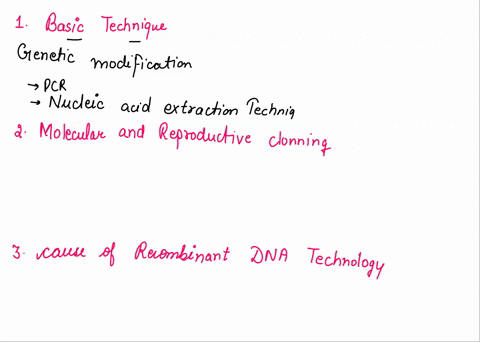 1. Basic Technique
Genetic modification
→ PCR
→ Nucleic acid extraction Techniq
2. Molecular and Reproductive clonning
3. cause of Recombinant DNA Technology